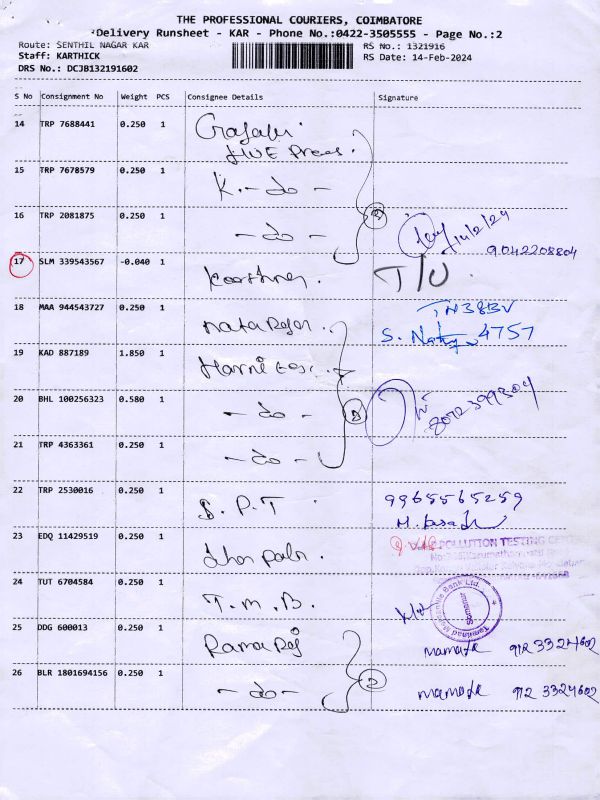 THE PROFESSIONAL COURIERS, COIMBATORE
Delivery Runsheet - KAR - Phone No.:0422-3505555 - Page No.:2
Route: SENTHIL NAGAR KAR
RS No.: 1321916
Staff: KARTHICK
RS Date: 14-Feb-2024
DRS No.: DCJB132191602
S No Consignment No Weight PCS Consignee Details Signature
14 TRP 7688441 0.250 1
15 TRP 7678579 0.250 1 K. - do -
16 TRP 2081875 0.250 1 - do - 14/2/24
9042208804
17 SLM 339543567 -0.040 1 T/U
18 MAA 944543727 0.250 1 TN38BV
S. 4757
19 KAD 887189 1.850 1
20 BHL 100256323 0.580 1 - do -
21 TRP 4363361 0.250 1 - do -
22 TRP 2530016 0.250 1 S. P. T. 9965565259
23 EDQ 11429519 0.250 1 POLLUTION TESTING
24 TUT 6704584 0.250 1 T. M. B. Tamilnad Mercantile Bank Ltd.
25 DDG 600013 0.250 1 Rama Raj mamata 912 3324602
26 BLR 1801694156 0.250 1 - do - mamata 912 3324602